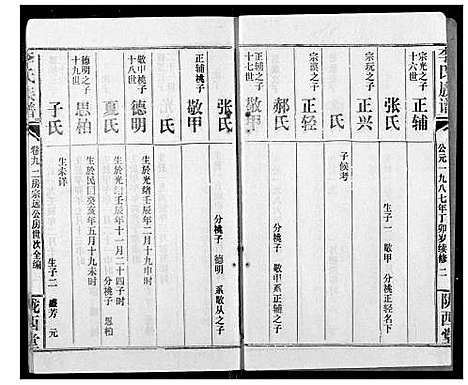 李氏族谱
公元一九八七年丁卯岁续修
二
陇西堂
十六世
宗光之子
正辅
张氏
生子一 敬甲 分桃正轻名下
宗玩之子
正兴
子候考
宗汉之子
正轻
郝氏
十七世
正辅之子
敬甲
正辅桃子
敬甲
张氏
分桃子 德明 系敬从之子
氏
十八世
敬甲桃子
德明
生于光绪壬辰年二月十九申时
夏氏
生于光绪壬辰年十一月二十四子时
分桃子 思柏
十九世
德明之子
思柏
生于民国癸亥年五月十九未时
于氏
生未详
生子二 盛芳 元
李氏族谱
卷九 二房宗远公房世次全编
陇西堂